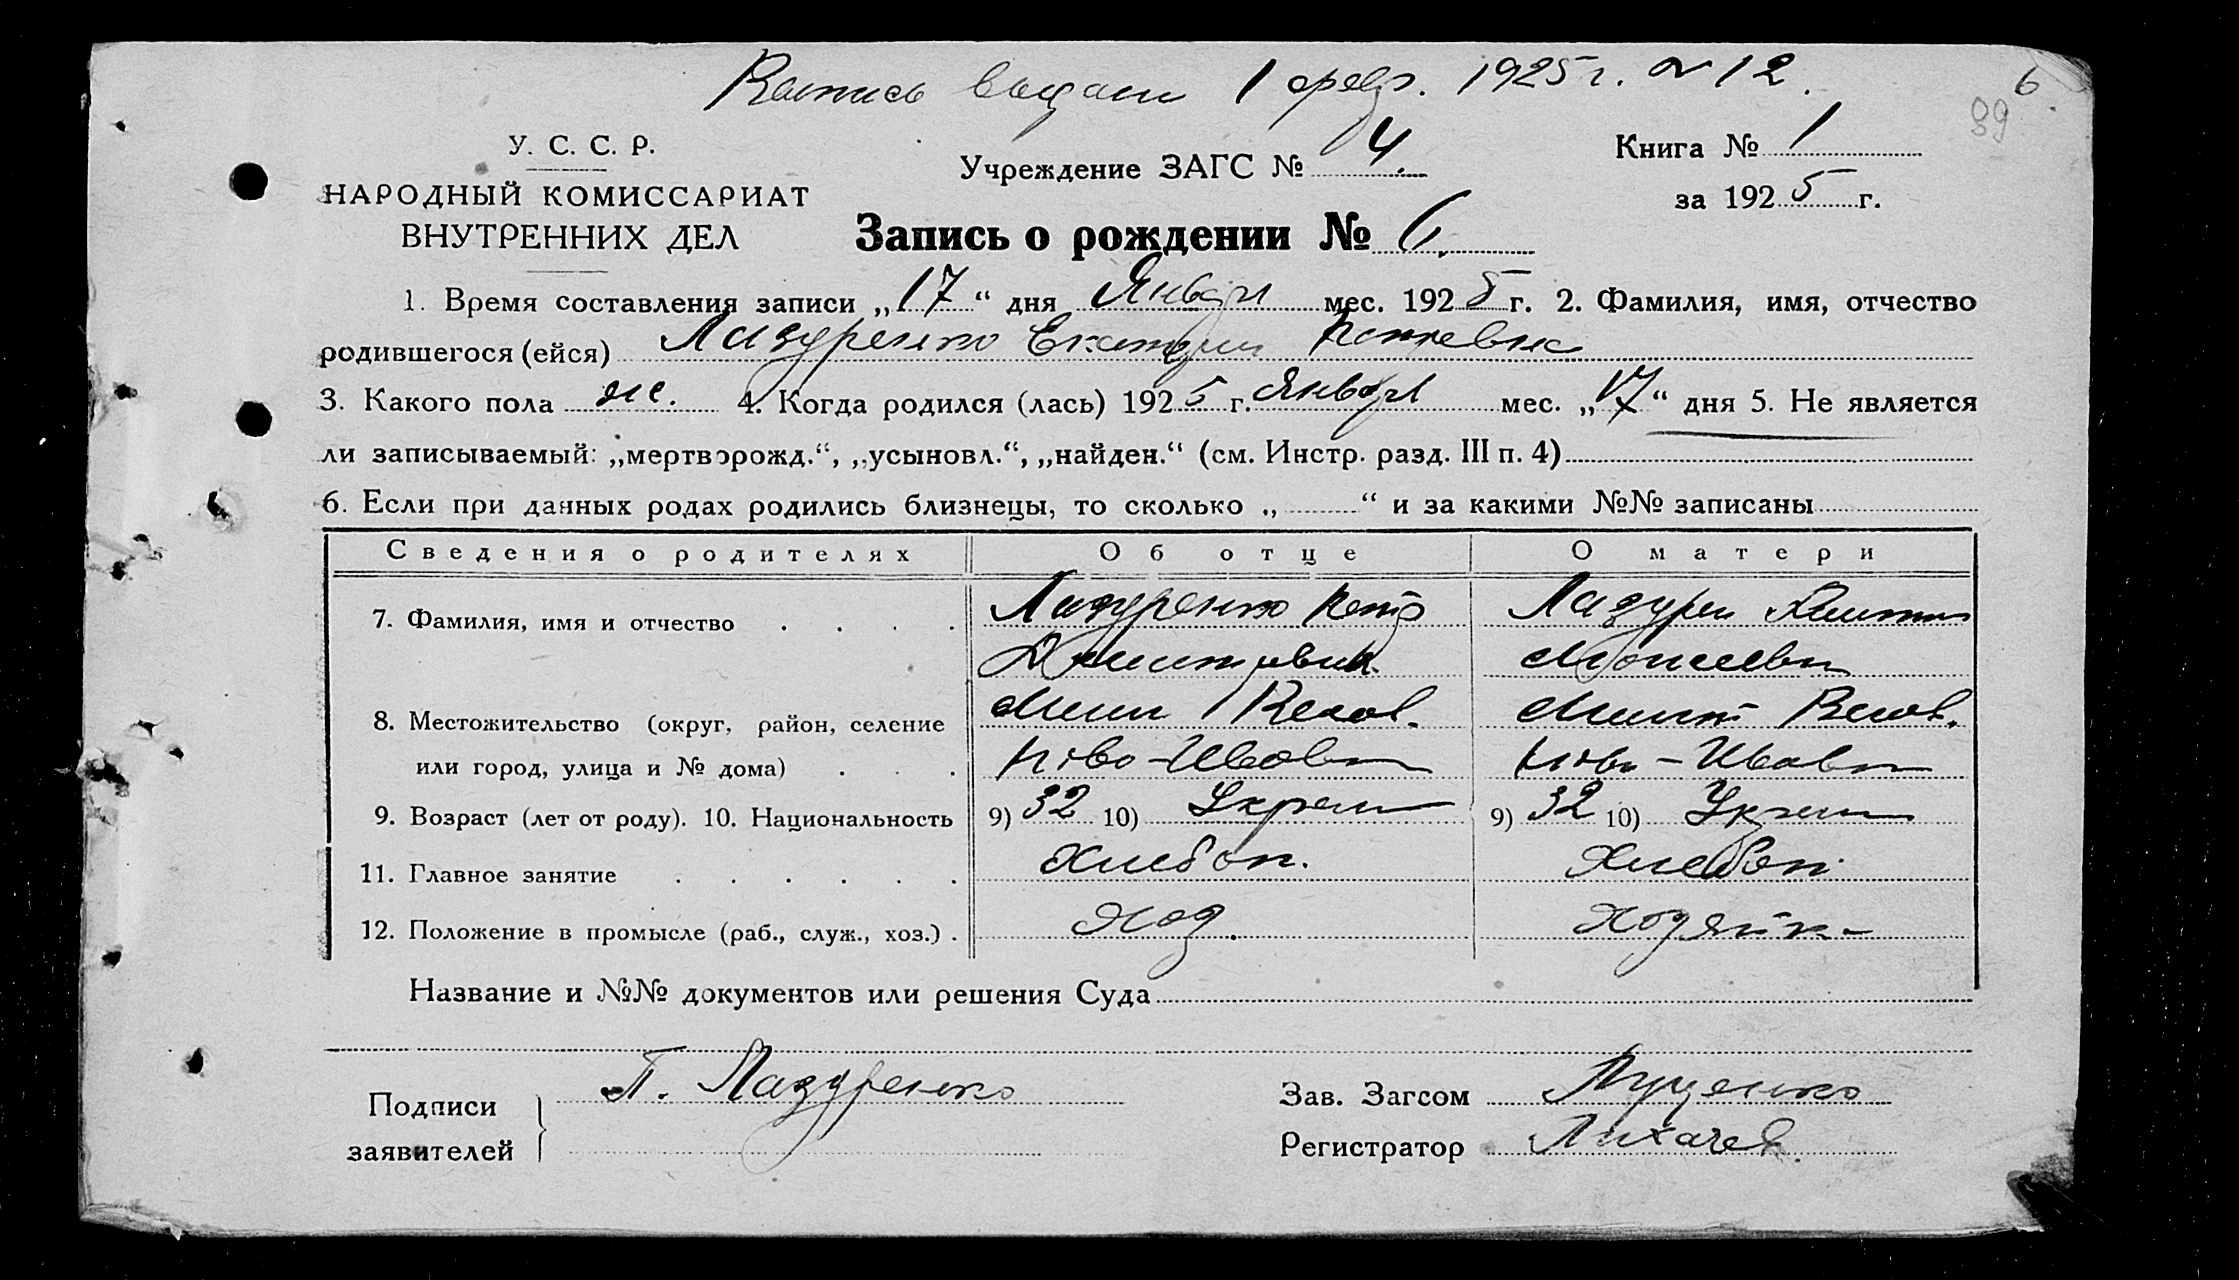 выдан 1 февр. 1925 г. № 12.
6.
89
У. С. С. Р.
НАРОДНЫЙ КОМИССАРИАТ
ВНУТРЕННИХ ДЕЛ
Учреждение ЗАГС № 4.
Книга № 1
за 1925 г.
Запись о рождении № 6.
1. Время составления записи „17“ дня Января мес. 1925 г. 2. Фамилия, имя, отчество
родившегося (ейся) Лазуренко Екатерин Петревна
3. Какого пола же. 4. Когда родился (лась) 1925 г. Января мес. „17“ дня 5. Не является
ли записываемый: „мертворожд.“, „усыновл.“, „найден.“ (см. Инстр. разд. III п. 4)
6. Если при данных родах родились близнецы, то сколько „ “ и за какими №№ записаны
Сведения о родителях Об отце О матери
7. Фамилия, имя и отчество . . . . Лазуренко Петр Лазурен
Дмитревич. Моисеевн
8. Местожительство (округ, район, селение
или город, улица и № дома) . . . Ново-Ивавн Ново-Ивавн
9. Возраст (лет от роду). 10. Национальность 9) 32 10) Украин 9) 32 10) Украин
11. Главное занятие . . . . . . Хлебоп. Хлебоп.
12. Положение в промысле (раб., служ., хоз.) . Хоз. Хозяйк-
Название и №№ документов или решения Суда
Подписи
заявителей
П. Лазуренко
Зав. Загсом Луценко
Регистратор Лихачев.